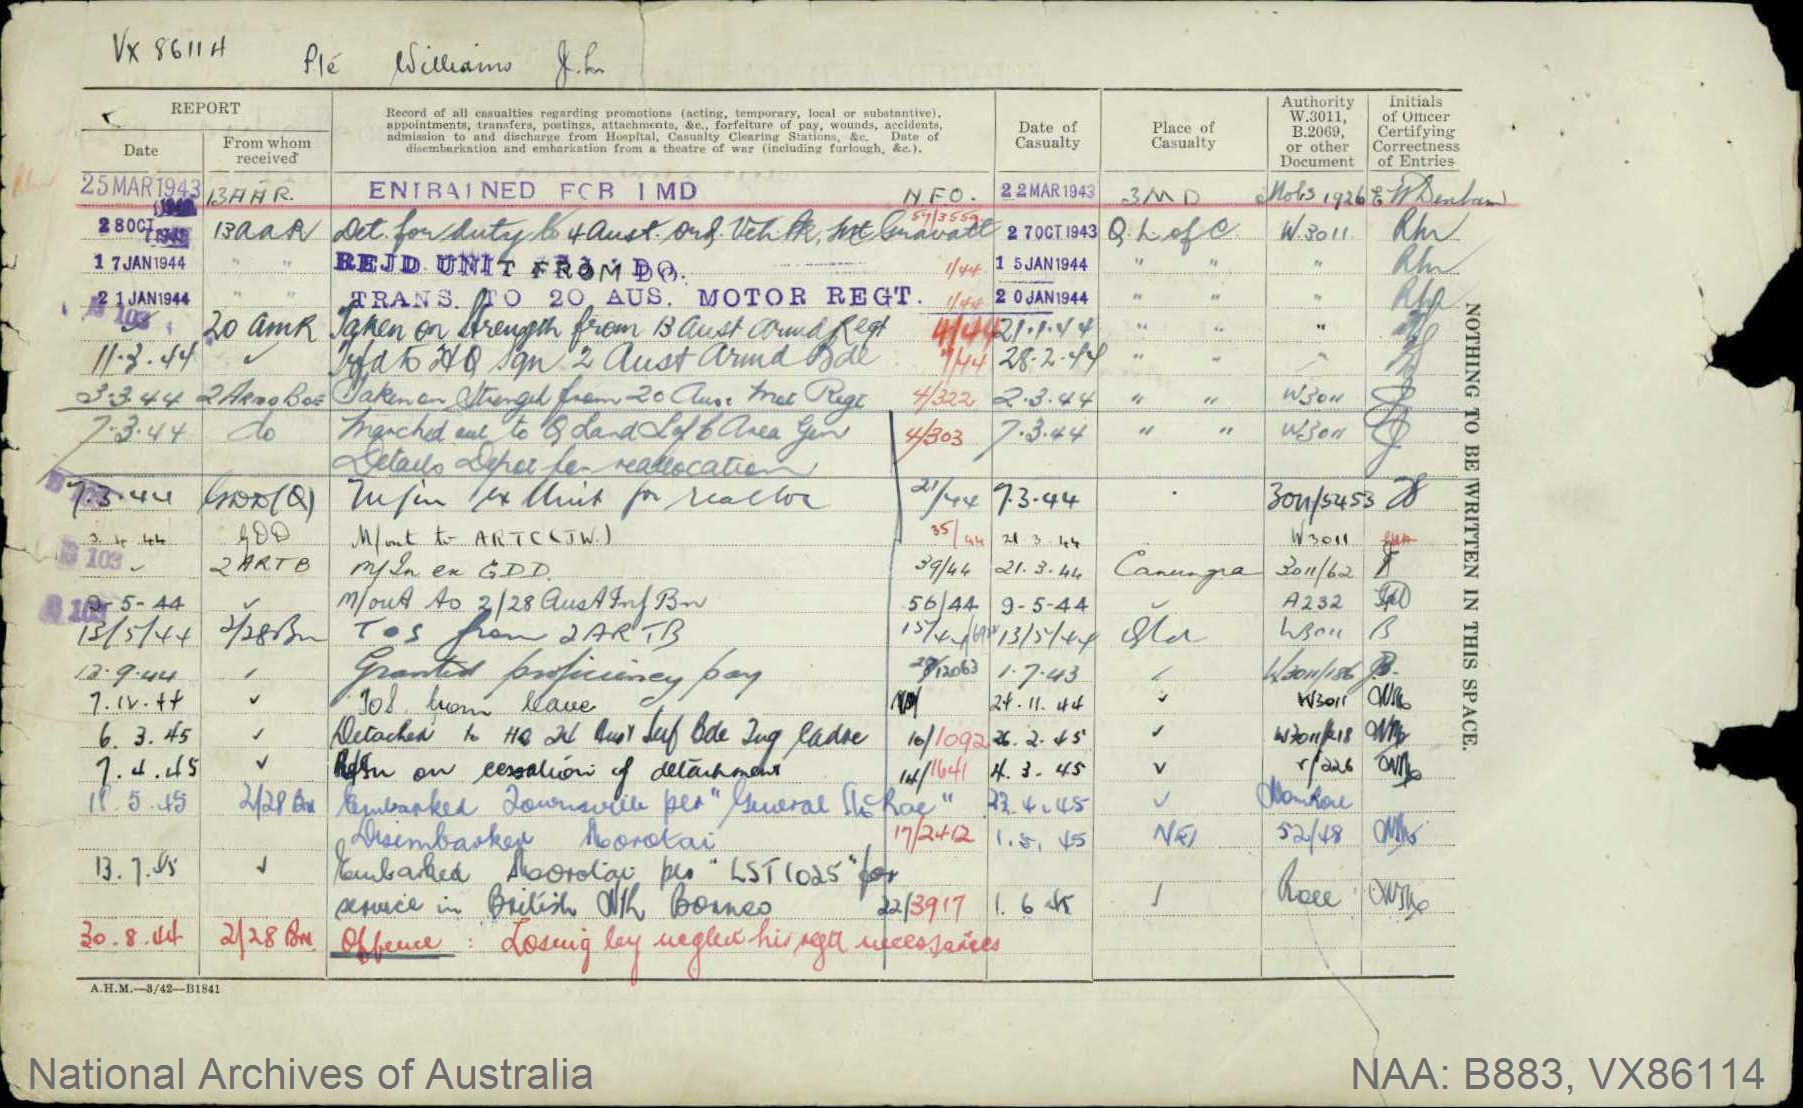 VX 86114 Pte Williams John
REPORT
Date
From whom received
Record of all casualties regarding promotions (acting, temporary, local or substantive), appointments, transfers, postings, attachments, &c., forfeiture of pay, wounds, accidents, admission to and discharge from Hospital, Casualty Clearing Stations, &c. Date of disembarkation and embarkation from a theatre of war (including furlough, &c.).
Date of Casualty
Place of Casualty
Authority W.3011, B.2069, or other Document
Initials of Officer Certifying Correctness of Entries
25 MAR 1943 13 AAR. ENTRAINED FOR 1 MD N.F.O. 22 MAR 1943 3 MD Mobs 1926 E W Denham
28 OCT 1943 13 AAR Det. for duty to 4 Aust. Ord. Veh Pk, Mt Gravatt 27 OCT 1943 Q. L. of C. W.3011
17 JAN 1944 " " REJD UNIT FROM DO. 1/44 15 JAN 1944 " " "
21 JAN 1944 " " TRANS. TO 20 AUS. MOTOR REGT. 1/44 20 JAN 1944 " " "
20 AMR Taken on Strength from 13 Aust Armd Regt 4/44 21.1.44 " " "
11.3.44 ✓ Tsfd to HQ Sqn 2 Aust Armd Bde 7/44 28.2.44 " "
3.3.44 2 Armd Bde Taken on Strength from 20 Aust Mot Regt 4/322 2.3.44 " " W3011
7.3.44 do Marched out to Q Land L of C Area Gen 4/303 7.3.44 " " W3011
Details Depot for reallocation
7.3.44 GDD(Q) M/in ex Unit for realloc 21/44 7.3.44 3011/5453
3 4 44 GDD M/out to ARTC (JW.) 35/44 21 3 44 W3011
✓ 2 ARTB M/In ex G.D.D. 39/44 21.3.44 Canungra 3011/62
9-5-44 ✓ M/out to 2/28 Aust Inf Bn 56/44 9-5-44 ✓ A232
13/5/44 2/28 Bn TOS from 2 ARTB 13/5/44 Qld W3011 B
12.9.44 ✓ Granted proficiency pay 1.7.43 ✓ W3011/186
7.12.44 ✓ TOS from leave 24.11.44 ✓ W3011
6.3.45 ✓ Detached to HQ 24 Aust Inf Bde Trg Cadre 10/1092 26.2.45 ✓
7.4.45 ✓ on cessation of detachment 14/1641 4.3.45 ✓ r/226
18.5.45 2/28 Bn Embarked Townsville per "General McRae" 22.4.45 ✓
Disembarked Morotai 17/2412 1.5.45 NEI 52/48
13.7.45 ✓ Embarked Morotai per "LST 1025" for
service in British Nth Borneo 22/3917 1.6.45
30.8.44 2/28 Bn Offence : Losing by neglect his regtl necessaries
A.H.M.—3/42—B1841
NOTHING TO BE WRITTEN IN THIS SPACE.
National Archives of Australia
NAA: B883, VX86114